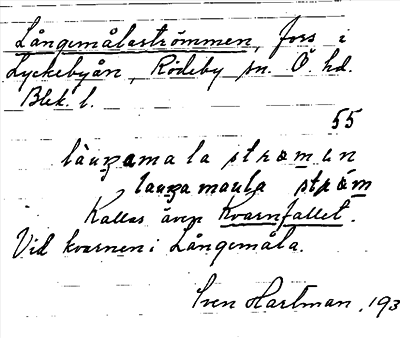 Långemålaströmmen, fors i
Lyckebyån, Rödeby sn. Ö. hd.
Blek. l.
55
làuŋamala strœmen
lauŋa maula strœm
Kallas även Kvarnfallet.
Vid kvarnen i Långemåla.
Sven Hartman, 193